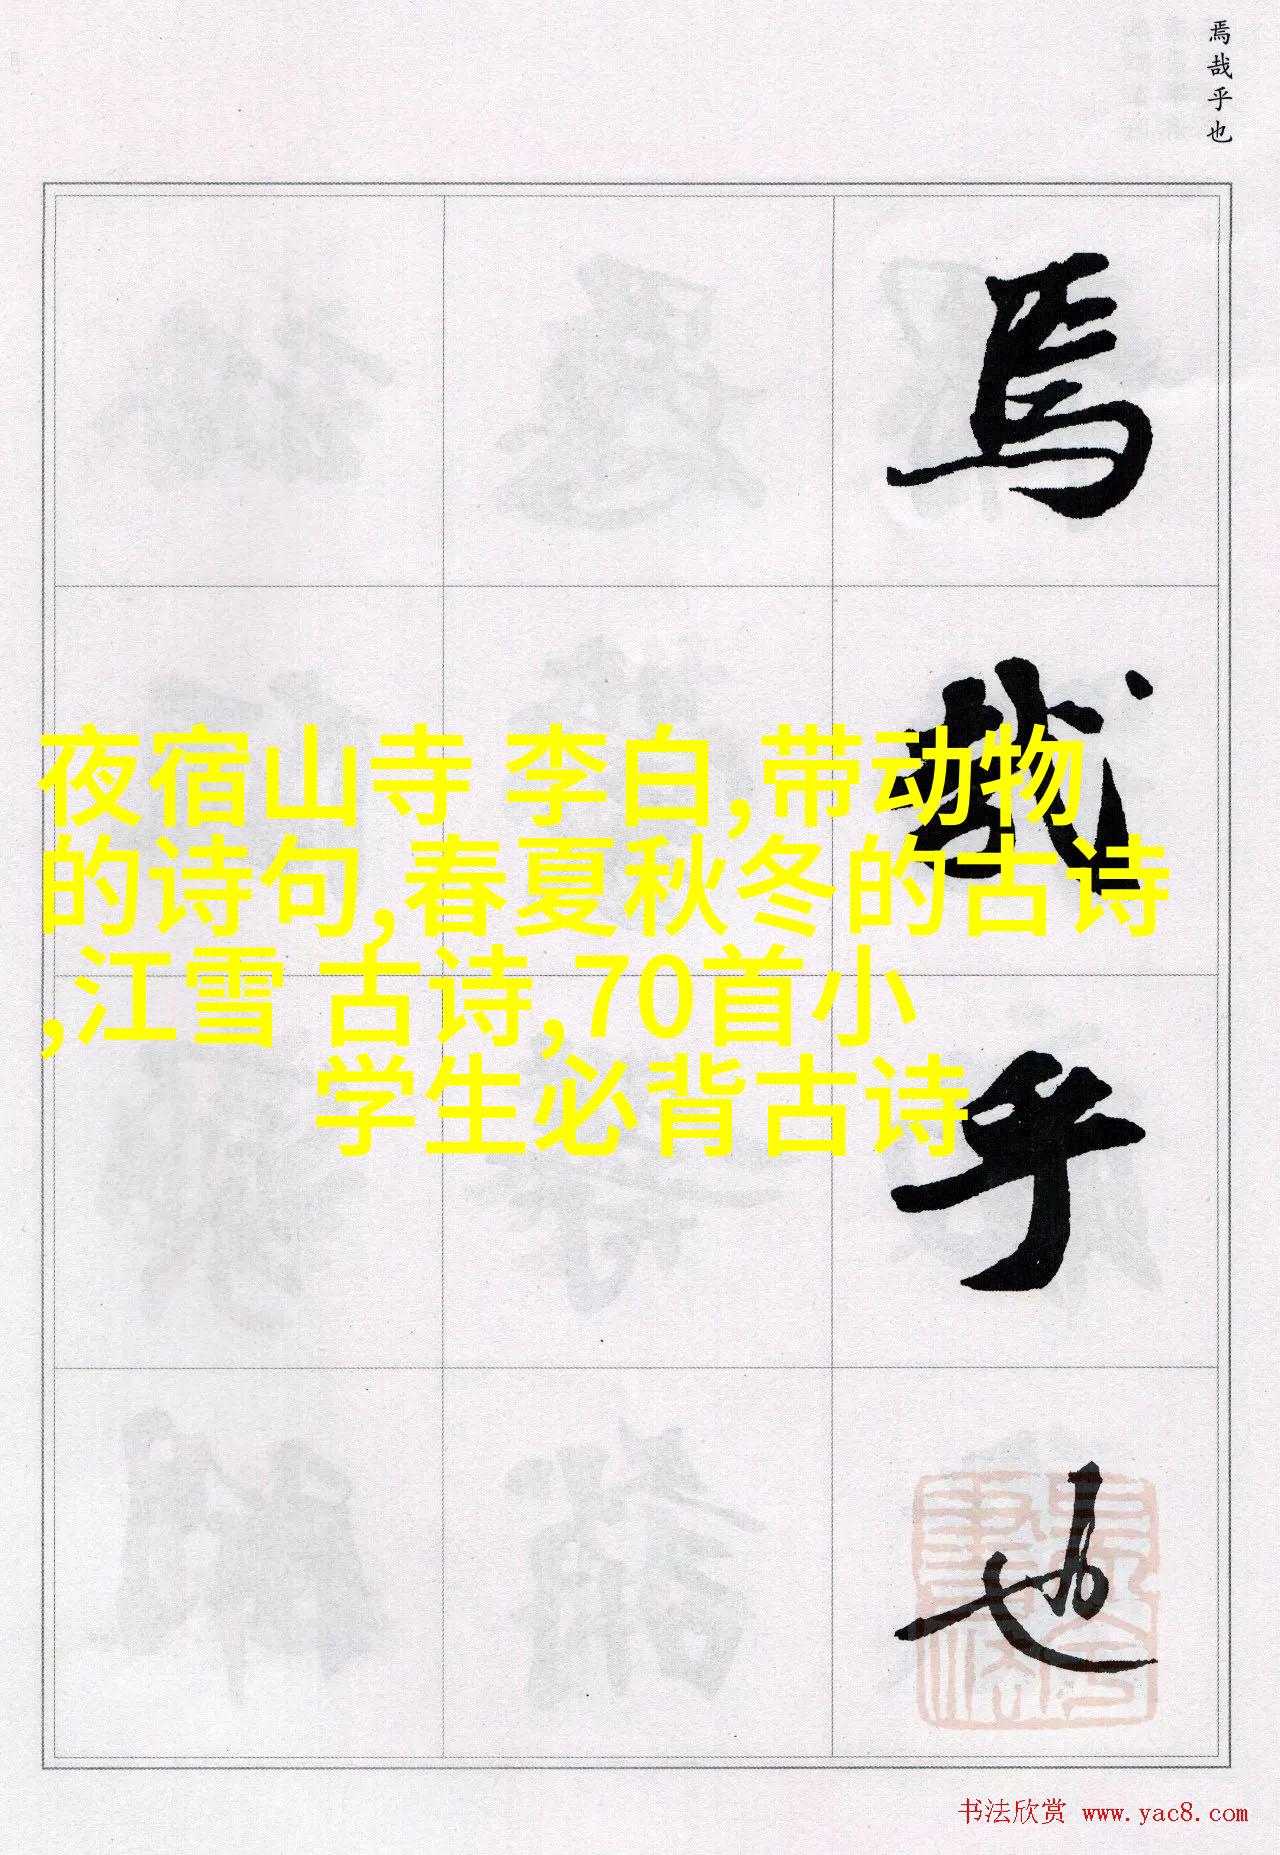 焉哉乎也
焉
哉
乎
也
夜宿山寺 李白,带动物
的诗句,春夏秋冬的古诗
,江雪 古诗,70首小
学生必背古诗
书法欣赏 www.yac8.com